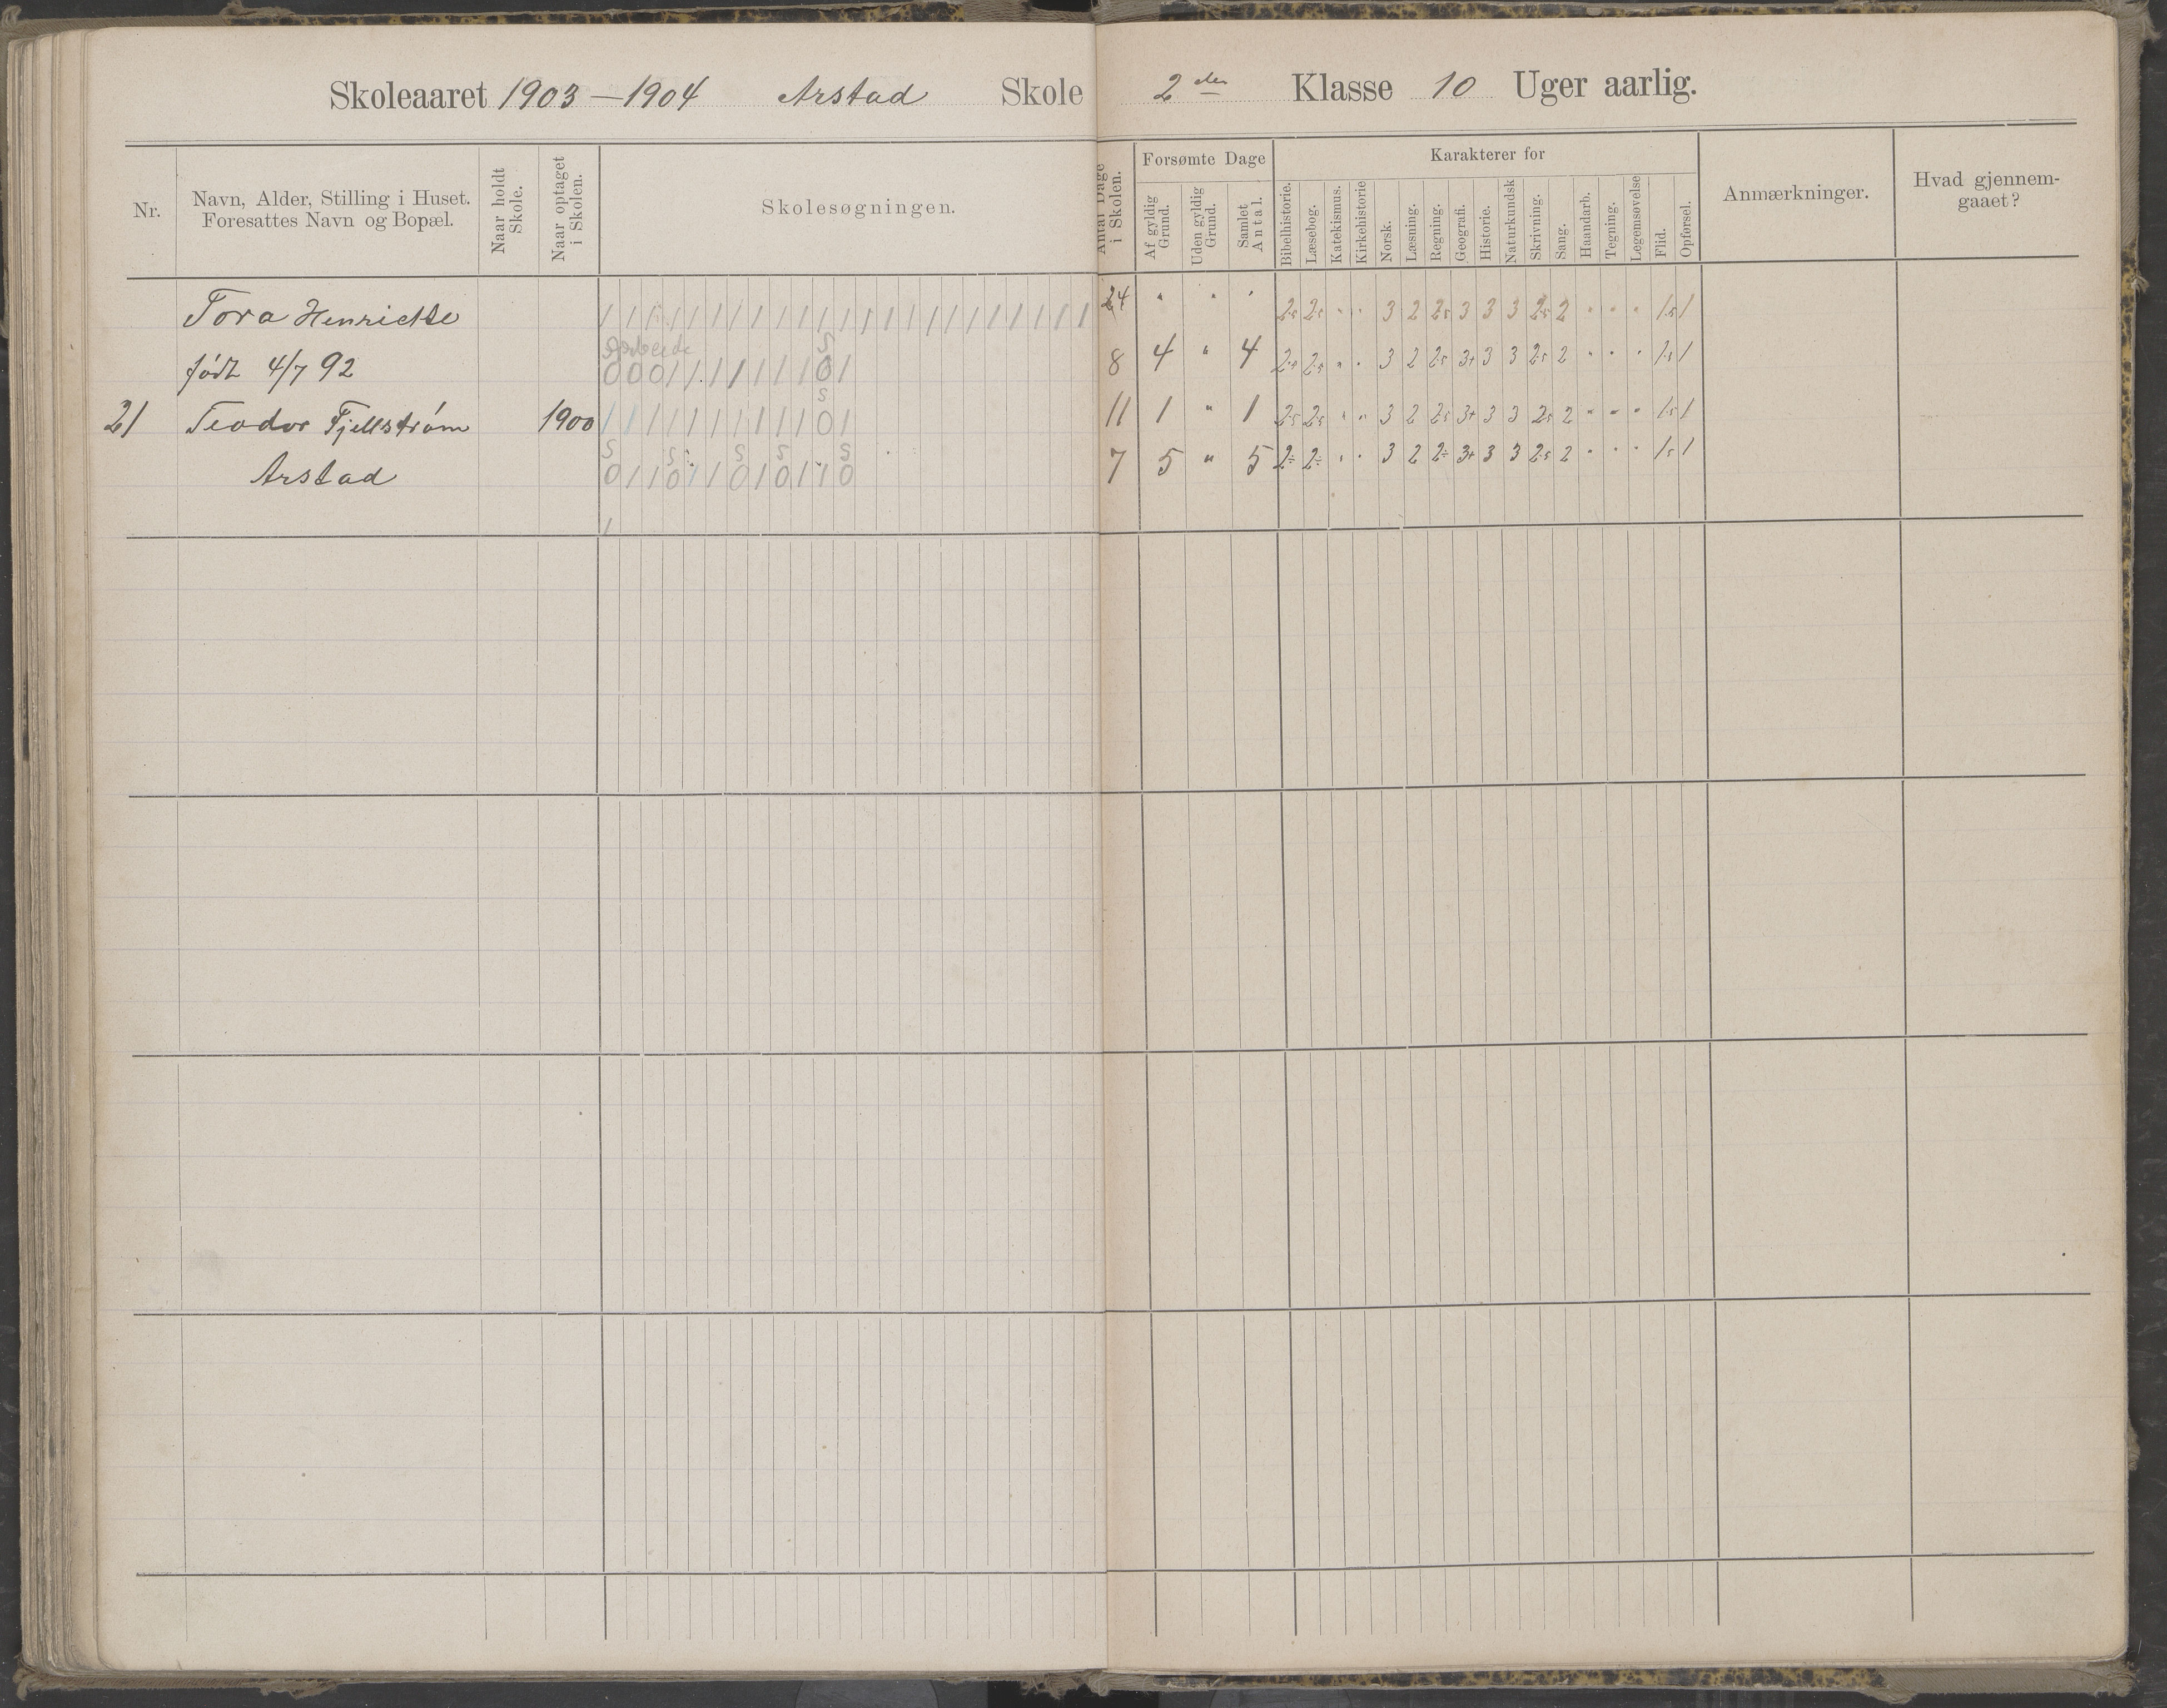 Skoleaaret 1903-1904 Arstad Skole 2den Klasse 10 Uger aarlig.
Nr.
Navn, Alder, Stilling i Huset.
Foresattes Navn og Bopæl.
Naar holdt
Skole.
Naar optaget
i Skolen.
Skolesøgningen.
Antal Dage
i Skolen.
Forsømte Dage
Af gyldig
Grund.
Uden gyldig
Grund.
Samlet
Antal.
Karakterer for
Bibelhistorie.
Læsebog.
Katekismus.
Kirkehistorie
Norsk.
Læsning.
Regning.
Geografi.
Historie.
Naturkundsk
Skrivning.
Sang.
Haandarb.
Tegning.
Legemsøvelse
Flid.
Opførsel.
Anmærkninger.
Hvad gjennem-
gaaet?
Tora Henriette / / / / / / / / / / / / / / / / / / / / / / / / 24 " " " 2.5 2.5 " " 3 2 2.5 3 3 3 2.5 2 " " " 1.5 1
S
født 4/7 92 0 0 0 / / / / / / / 0 / 8 4 " 4 2.5 2.5 " " 3 2 2.5 3+ 3 3 2.5 2 " " " 1.5 1
S
21 Teodor Fjellstrøm 1900 / / / / / / / / / / 0 / 11 1 " 1 2.5 2.5 " " 3 2 2.5 3+ 3 3 2.5 2 " " " 1.5 1
S S S S S
Arstad 0 / / 0 / / 0 / 0 / / 0 7 5 " 5 2÷ 2÷ " " 3 2 2÷ 3+ 3 3 2.5 2 " " " 1.5 1
/